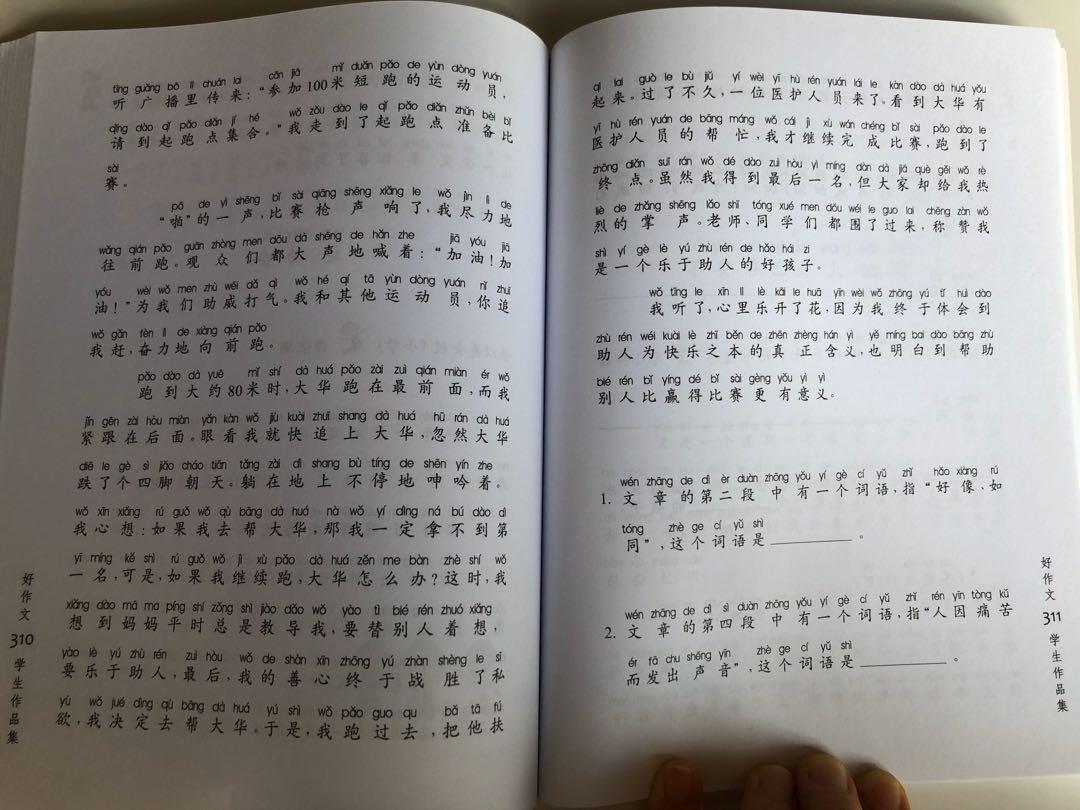 tīng guǎng bō lǐ chuán lai cān jiā mǐ duǎn pǎo de yùn dòng yuán
听广播里传来：“参加100米短跑的运动员，
qǐng dào qǐ pǎo diǎn jí hé wǒ zǒu dào le qǐ pǎo diǎn zhǔn bèi bǐ
请到起跑点集合。”我走到了起跑点准备比
sài
赛。
pā de yì shēng bǐ sài qiāng shēng xiǎng le wǒ jìn lì de
“啪”的一声，比赛枪声响了，我尽力地
wǎng qián pǎo guān zhòng men dōu dà shēng de hǎn zhe jiā yóu jiā
往前跑。观众们都大声地喊着：“加油！加
yóu wèi wǒ men zhù wēi dǎ qì wǒ hé qí tā yùn dòng yuán nǐ zhuī
油！”为我们助威打气。我和其他运动员，你追
wǒ gǎn fèn lì de xiàng qián pǎo
我赶，奋力地向前跑。
pǎo dào dà yuē mǐ shí dà huá pǎo zài zuì qián miàn ér wǒ
跑到大约80米时，大华跑在最前面，而我
jǐn gēn zài hòu miàn yǎn kàn wǒ jiù kuài zhuī shang dà huá hū rán dà huá
紧跟在后面。眼看我就快追上大华，忽然大华
diē le gè sì jiǎo cháo tiān tǎng zài dì shang bù tíng de shēn yín zhe
跌了个四脚朝天。躺在地上不停地呻吟着。
wǒ xīn xiǎng rú guǒ wǒ qù bāng dà huá nà wǒ yí dìng ná bú dào dì
我心想：如果我去帮大华，那我一定拿不到第
yī míng kě shì rú guǒ wǒ jì xù pǎo dà huá zěn me bàn zhè shí wǒ
一名，可是，如果我继续跑，大华怎么办？这时，我
xiǎng dào mā ma píng shí zǒng shì jiào dǎo wǒ yào tì bié rén zhuó xiǎng
想到妈妈平时总是教导我，要替别人着想，
yào lè yú zhù rén zuì hòu wǒ de shàn xīn zhōng yú zhàn shèng le sī
要乐于助人，最后，我的善心终于战胜了私
yù wǒ jué dìng qù bāng dà huá yú shì wǒ pǎo guo qu bǎ tā fú
欲，我决定去帮大华。于是，我跑过去，把他扶
好作文
310
学生作品集
qǐ lai guò le bù jiǔ yí wèi yī hù rén yuán lái le kàn dào dà huá yǒu
起来。过了不久，一位医护人员来了。看到大华有
yī hù rén yuán de bāng máng wǒ cái jì xù wán chéng bǐ sài pǎo dào le
医护人员的帮忙，我才继续完成比赛，跑到了
zhōng diǎn suī rán wǒ dé dào zuì hòu yì míng dàn dà jiā què gěi wǒ rè
终点。虽然我得到最后一名，但大家却给我热
liè de zhǎng shēng lǎo shī tóng xué men dōu wéi le guo lai chēng zàn wǒ
烈的掌声。老师、同学们都围了过来，称赞我
shì yí gè lè yú zhù rén de hǎo hái zi
是一个乐于助人的好孩子。
wǒ tīng le xīn lǐ lè kāi le huā yīn wèi wǒ zhōng yú tǐ huì dào
我听了，心里乐开了花，因为我终于体会到
zhù rén wéi kuài lè zhī běn de zhēn zhèng hán yì yě míng bai dào bāng zhù
助人为快乐之本的真正含义，也明白到帮助
bié rén bǐ yíng dé bǐ sài gèng yǒu yì yì
别人比赢得比赛更有意义。
wén zhāng de dì èr duàn zhōng yǒu yí gè cí yǔ zhǐ hǎo xiàng rú
1. 文章的第二段中有一个词语，指“好像、如
tóng zhè ge cí yǔ shì
同”，这个词语是________。
wén zhāng de dì sì duàn zhōng yǒu yí gè cí yǔ zhǐ rén yīn tòng kǔ
2. 文章的第四段中有一个词语，指“人因痛苦
ér fā chu shēng yīn zhè ge cí yǔ shì
而发出声音”，这个词语是________。
好作文
311
学生作品集